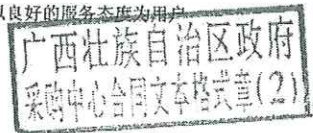 以良好的服务态度为用户
广西壮族自治区政府
采购中心合同文本格式章(2)